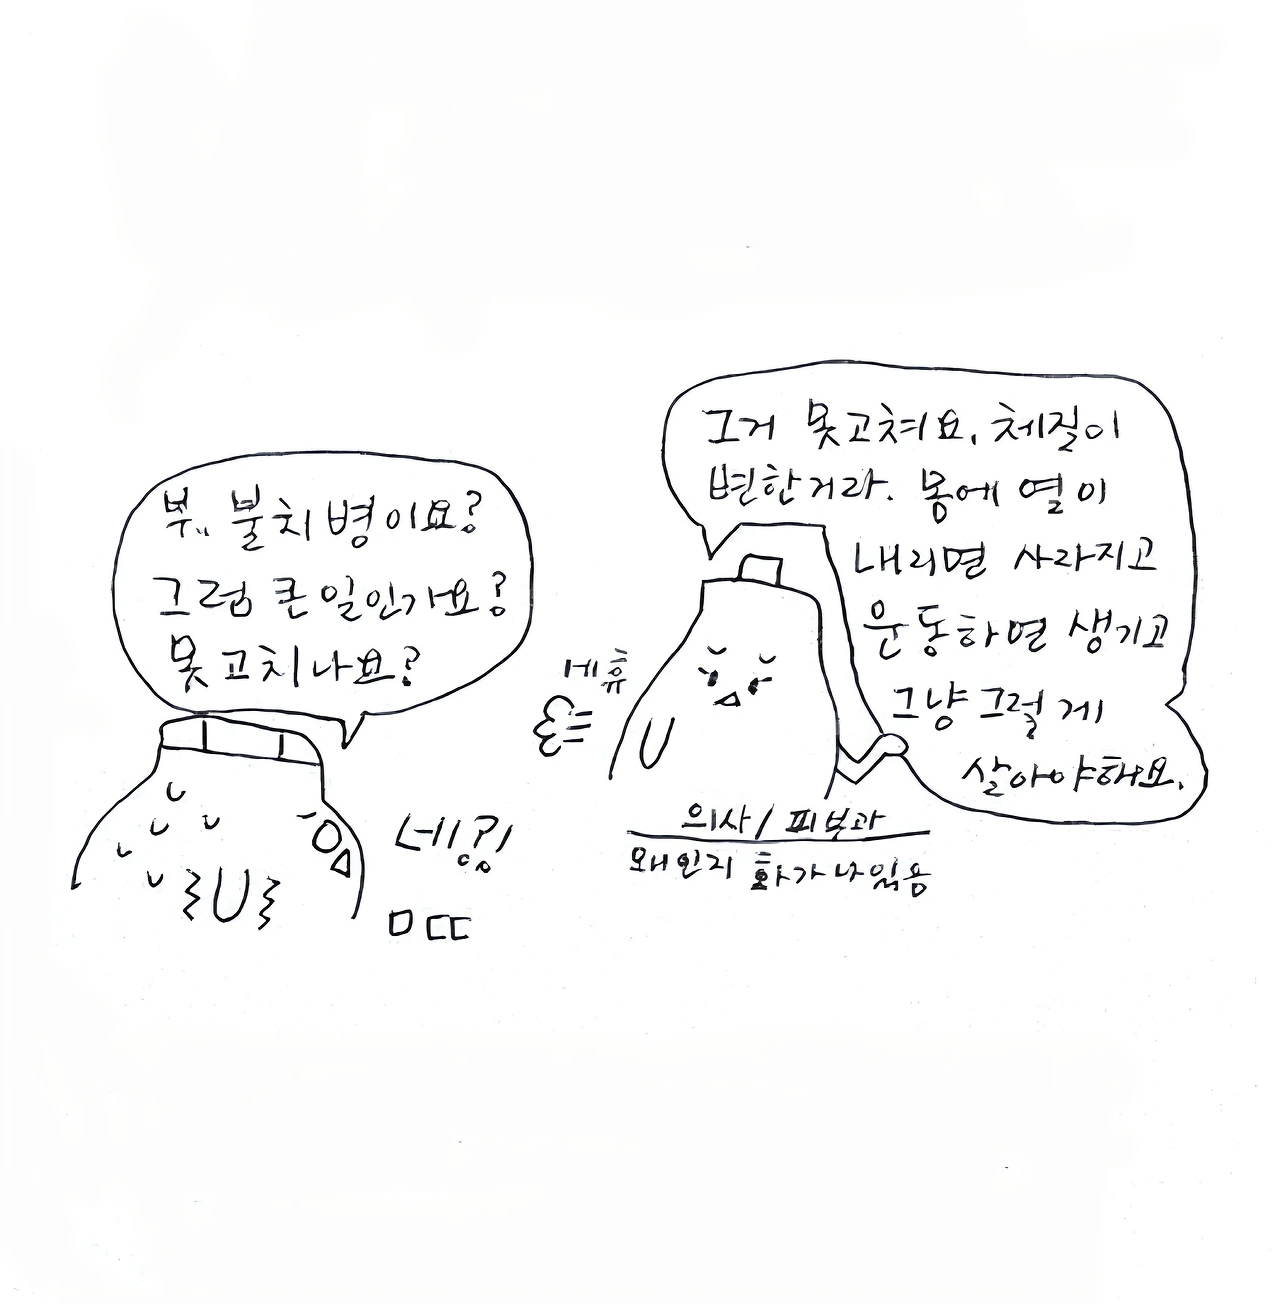 부.. 불치병이요?
그럼 큰일인가요?
못고치나요?
그거 못고쳐요. 체질이
변한거라. 몸에 열이
내리면 사라지고
운동하면 생기고
그냥 그렇게
살아야해요.
에휴
네?!
ㅁㄷㄷ
의사/피부과
왜인지 화가나있음